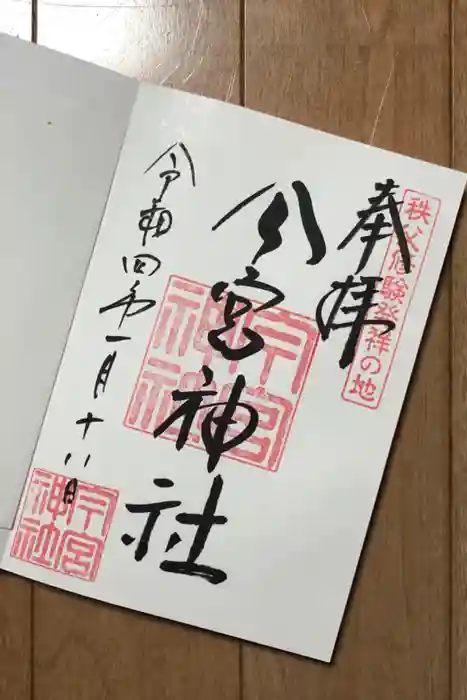 奉拝
秩父修験発祥の地
今宮神社
今宮神社
令和四年一月十八日
今宮神社